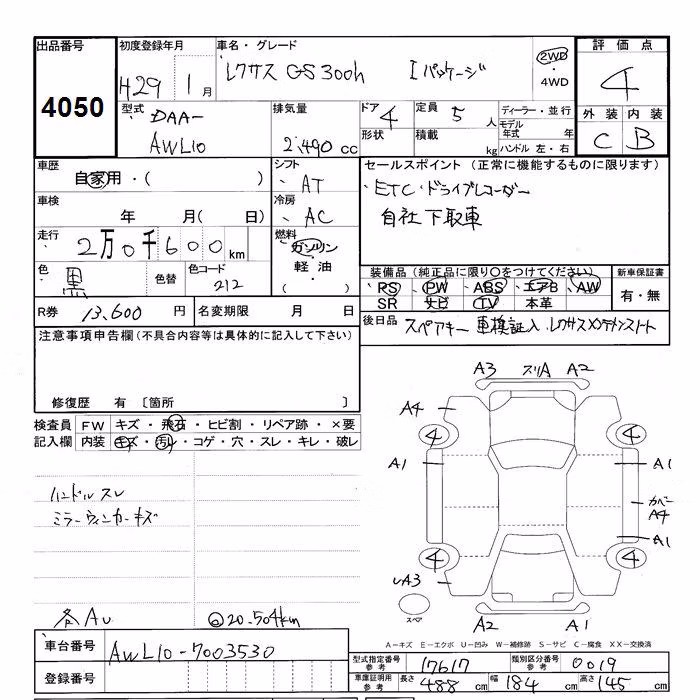 出品番号 初度登録年月 車名・グレード 評価点
4050 H29 1月 レクサス GS300h Iパッケージ 2WD・4WD 4
型式 DAA-AWL10 排気量 2,490cc ドア 4 形状 定員 5人 積載 kg ディーラー・並行 モデル年式 年 ハンドル 左・右 外装 C 内装 B
車歴 自家用・( ) シフト AT セールスポイント (正常に機能するものに限ります)
・ETC・ドライブレコーダー
自社下取車
車検 年 月( 日) 冷房 AC
走行 2万0千600km 燃料 ガソリン・軽油・( )
色 黒 色替 色コード 212 装備品 (純正品に限り〇をつけてください) 新車保証書
PS PW ABS エアB AW 有・無
SR ナビ TV 本革
R券 13,600円 名変期限 月 日 後日品 スペアキー 車検証入 レクサスメンテナンスノート
注意事項申告欄(不具合内容等は具体的に記入して下さい)
修復歴 有 〔箇所 〕
検査員記入欄 FW キズ・飛石・ヒビ割・リペア跡・×要
内装 キズ・汚レ・コゲ・穴・スレ・キレ・破レ
ハンドルスレ
ミラーウィンカーキズ
各AU 20,504km
A3 スリA A2
A4
4 4
A1 A1
カバーA4
A1
4 4
A3
スペア A2 A1
A-キズ E-エクボ U-凹み W-補修跡 S-サビ C-腐食 XX-交換済
車台番号 AWL10-7003530 型式指定番号 参考 17617 類別区分番号 参考 0019
登録番号 車庫証明用 参考 長さ 488 幅 184 高さ 145 cm